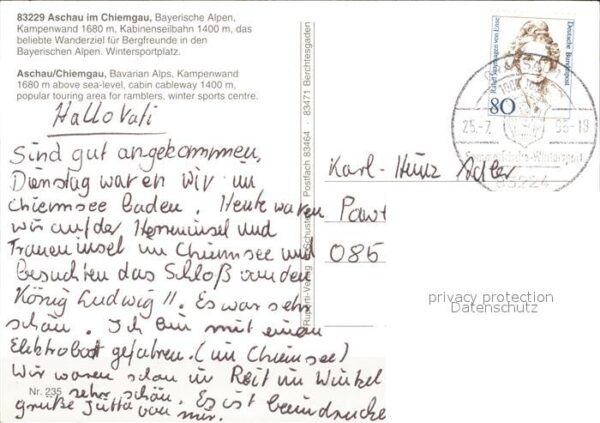 83229 Aschau im Chiemgau, Bayerische Alpen,
Kampenwand 1680 m, Kabinenseilbahn 1400 m, das
beliebte Wanderziel für Bergfreunde in den
Bayerischen Alpen. Wintersportplatz.
Aschau/Chiemgau, Bavarian Alps, Kampenwand
1680 m above sea-level, cabin cableway 1400 m,
popular touring area for ramblers, winter sports centre.
Hallo Vati
Sind gut angekommen,
Dienstag waren wir im
Chiemsee baden. Heute waren
wir auf der Herreninsel und
Fraueninsel im Chiemsee und
besuchten das Schloß von den
König Ludwig II. Es war sehr
schön. Ich bin mit einem
Elektroboot gefahren. (im Chiemsee)
Wir waren schon in Reit im Winkel
sehr schön. Es ist beeindrucke
grüße Jutta von mir.
Nr. 235
Postfach 83464 · 83471 Berchtesgaden
Deutsche Bundespost
80
25.-7
-18
83229
Karl-Heinz Adler
085
privacy protection
Datenschutz